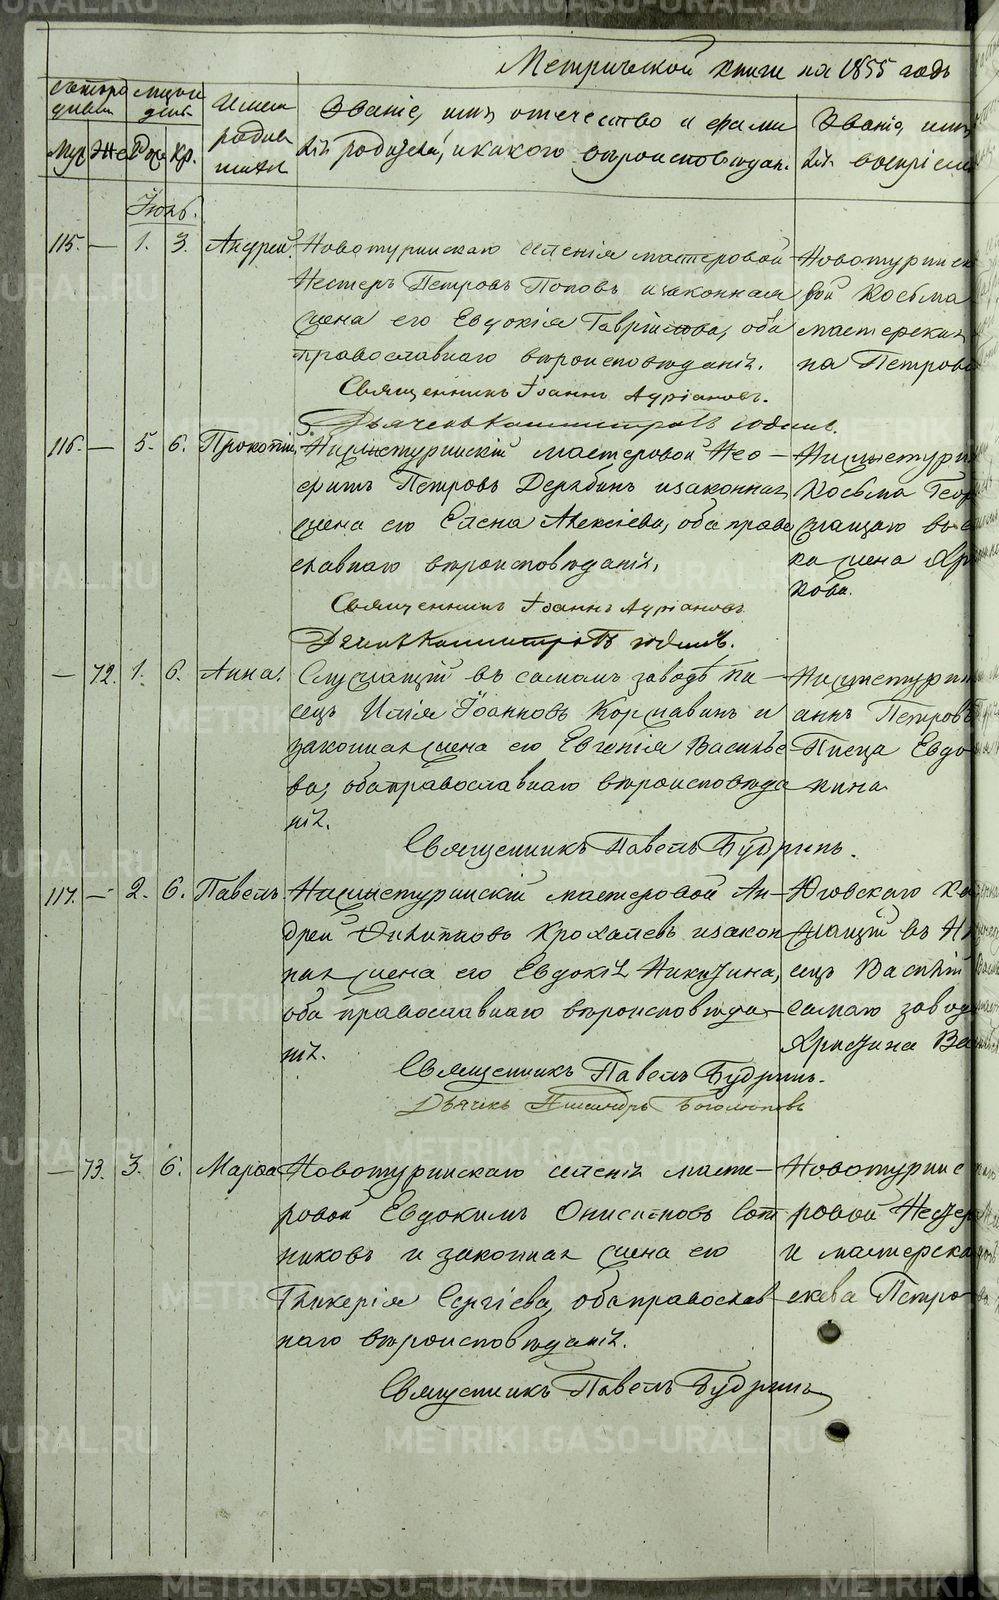 Метрической книги на 1855 годъ
Счетъ родив
шихся
Муж Жен
Месяцъ и
день
Рож Кр.
Имена
родив
шихся
Званіе, имя отечество и фами
лія родителей, и какого вѣроисповѣдан.
Званіе, имя
лія воспріем
Іюнь.
115. — 1. 3. Андрей.
Новотуринскаго селенія мастеровой
Нестеръ Петровъ Поповъ и законная
жена его Евдокія Гаврилова, оба
православнаго вѣроисповѣданія.
Священникъ Іоаннъ Адріановъ.
Новотуринск
вой Косьма
мастерских
на Петрова
116. — 5. 6. Прокопій.
Нижнетуринскій мастеровой Нео—
фитъ Петровъ Дерябинъ и законная
жена его Елена Алексіева, оба право
славнаго вѣроисповѣданія,
Священникъ Іоаннъ Адріановъ
Нижнетурин
Косьма Геор
жена
кова.
— 72. 1. 6. Анна.
Служащій въ самомъ заводѣ пи—
сецъ Илія Іоанновъ Коржавинъ и
законная жена его Евгенія Василье
ва, оба православнаго вѣроисповѣда
нія.
Священникъ Павелъ Будринъ.
Нижнетурин
аннъ Петровъ
Писца Евдо
кина
117. — 2. 6. Павелъ.
Нижнетуринскій мастеровой Ан—
дрей Филипповъ Крохалевъ и закон
ная жена его Евдокія Никитина,
оба православнаго вѣроисповѣда—
нія.
Священникъ Павелъ Будринъ.
Дьячекъ
Юговскаго
жащій въ Н
сецъ Василій
самаго завод
Христина Ва
— 73. 3. 6. Марѳа
Новотуринскаго селенія масте—
ровой Евдокимъ Онисимовъ Сот
никовъ и законная жена его
Гликерія Сергіева, оба православ
наго вѣроисповѣданія.
Священникъ Павелъ Будринъ
Новотуринс
ровой Нестер
и мастерска
Петро
METRIKI.GASO-URAL.RU